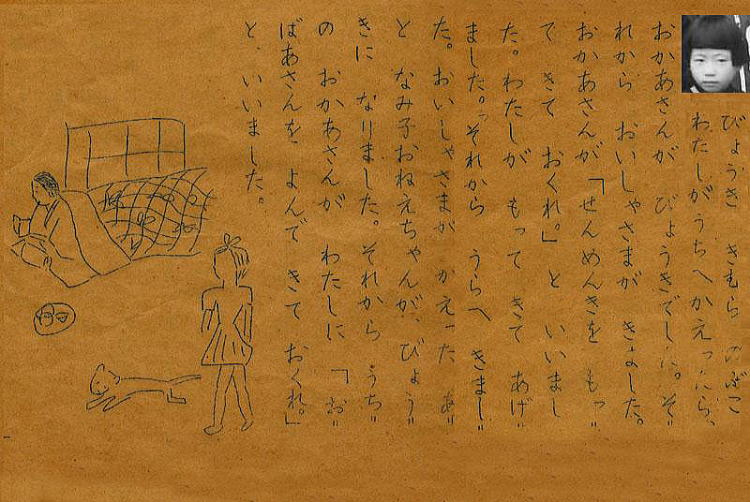 びょうき きむら のぶこ
わたしがうちへかえったら、
おかあさんが びょうきでした。そ
れから おいしゃさまが きました。
おかあさんが 「せんめんきを もっ
て きて おくれ。」 と いいまし
た。わたしが もって きて あげ
ました。それから うらへ きまし
た。おいしゃさまが かえった あ
と なみ子おねえちゃんが、びょう
きに なりました。それから うち
の おかあさんが わたしに 「お
ばあさんを よんで きて おくれ。」
と、いいました。